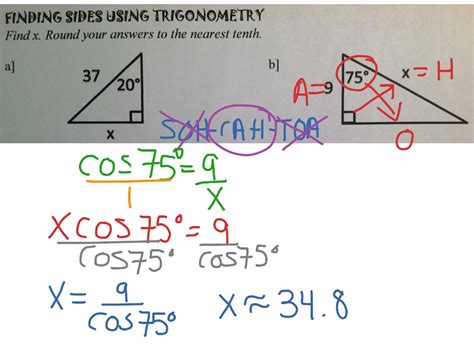 FINDING SIDES USING TRIGONOMETRY
Find x. Round your answers to the nearest tenth.
a]
37
20°
x
b]
A=9
75°
x = H
O
SOH-CAH-TOA
cos 75° = 9
1
X
x cos 75° = 9
cos75° cos75°
X = 9
cos 75°
X ≈ 34.8